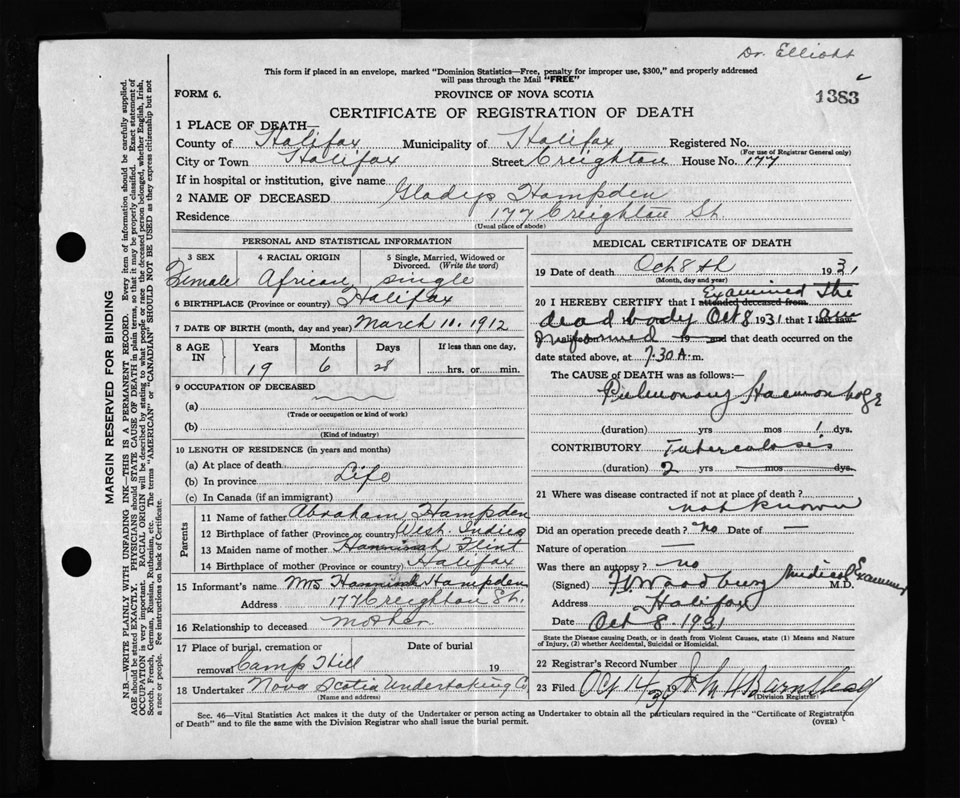 Dr. Elliott
This form if placed in an envelope, marked "Dominion Statistics—Free, penalty for improper use, $300," and properly addressed
will pass through the Mail "FREE"
FORM 6.
PROVINCE OF NOVA SCOTIA
1383
CERTIFICATE OF REGISTRATION OF DEATH
1 PLACE OF DEATH—
County of Halifax Municipality of Halifax Registered No.
(For use of Registrar General only)
City or Town Halifax Street Creighton House No. 177
If in hospital or institution, give name
2 NAME OF DECEASED Gladys Hampden
Residence 177 Creighton St.
(Usual place of abode)
PERSONAL AND STATISTICAL INFORMATION
3 SEX 4 RACIAL ORIGIN 5 Single, Married, Widowed or
Divorced. (Write the word)
Female African single
6 BIRTHPLACE (Province or country) Halifax
7 DATE OF BIRTH (month, day and year) March 10. 1912
8 AGE IN Years Months Days If less than one day,
19 6 28 hrs. or min.
9 OCCUPATION OF DECEASED
(a)
(Trade or occupation or kind of work)
(b)
(Kind of industry)
10 LENGTH OF RESIDENCE (in years and months)
(a) At place of death
(b) In province Life
(c) In Canada (if an immigrant)
Parents
11 Name of father Abraham Hampden
12 Birthplace of father (Province or country) West Indies
13 Maiden name of mother Hannah Flint
14 Birthplace of mother (Province or country) Halifax
15 Informant's name Mrs Hannah Hampden
Address 177 Creighton St.
16 Relationship to deceased Mother
17 Place of burial, cremation or Date of burial
removal Camp Hill 19
18 Undertaker Nova Scotia Undertaking Co
(Name and address)
MEDICAL CERTIFICATE OF DEATH
19 Date of death Oct 8th 1931
(Month, day and year)
20 I HEREBY CERTIFY that I attended deceased from Examined the
dead body Oct 8 1931 that I last saw am
informed 19 and that death occurred on the
date stated above, at 7.30 A.m.
The CAUSE OF DEATH was as follows:—
Pulmonary Haemorrhage
(duration) yrs mos 1 dys.
CONTRIBUTORY Tuberculosis
(duration) 2 yrs mos dys.
21 Where was disease contracted if not at place of death?
not known
Did an operation precede death? no Date of —
Nature of operation —
Was there an autopsy? no
(Signed) Woodbury Medical Examiner M.D.
Address Halifax
Date Oct 8 1931
State the Disease causing Death, or in death from Violent Causes, state (1) Means and Nature
of Injury, (2) whether Accidental, Suicidal or Homicidal.
22 Registrar's Record Number
23 Filed Oct 14 Barnstead
(Division Registrar)
Sec. 46—Vital Statistics Act makes it the duty of the Undertaker or person acting as Undertaker to obtain all the particulars required in the "Certificate of Registration
of Death" and to file the same with the Division Registrar who shall issue the burial permit.
(OVER)
MARGIN RESERVED FOR BINDING
N.B.—WRITE PLAINLY WITH UNFADING INK—THIS IS A PERMANENT RECORD. Every item of information should be carefully supplied.
AGE should be stated EXACTLY. PHYSICIANS should STATE CAUSE OF DEATH in plain terms, so that it may be properly classified. Exact statement of
OCCUPATION is very important. RACIAL ORIGIN will be described by stating to what people or race the deceased person belonged, whether English, Irish,
Scotch, French, German, Russian, Ruthenian, etc. The terms "AMERICAN" or "CANADIAN" SHOULD NOT BE USED as they express citizenship but not
a race or people. Fee instructions on back of Certificate.